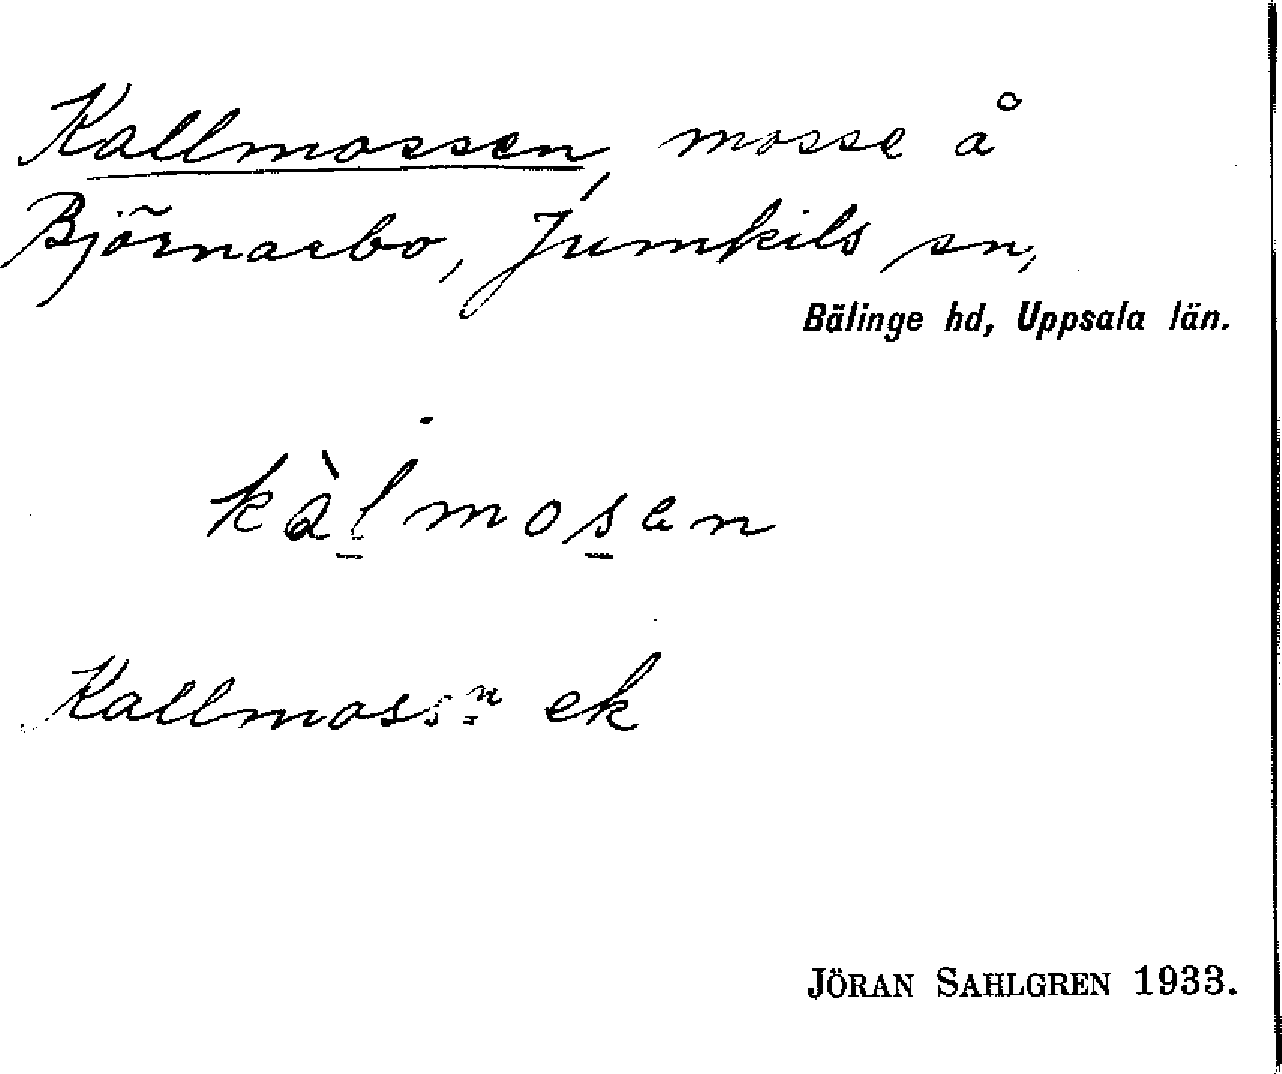 Kallmossen, mosse å
Björnarbo, Jumkils sn,
Bälinge hd, Uppsala län.
kàl̲mos̲en
Kallmoss:n ek
JÖRAN SAHLGREN 1933.